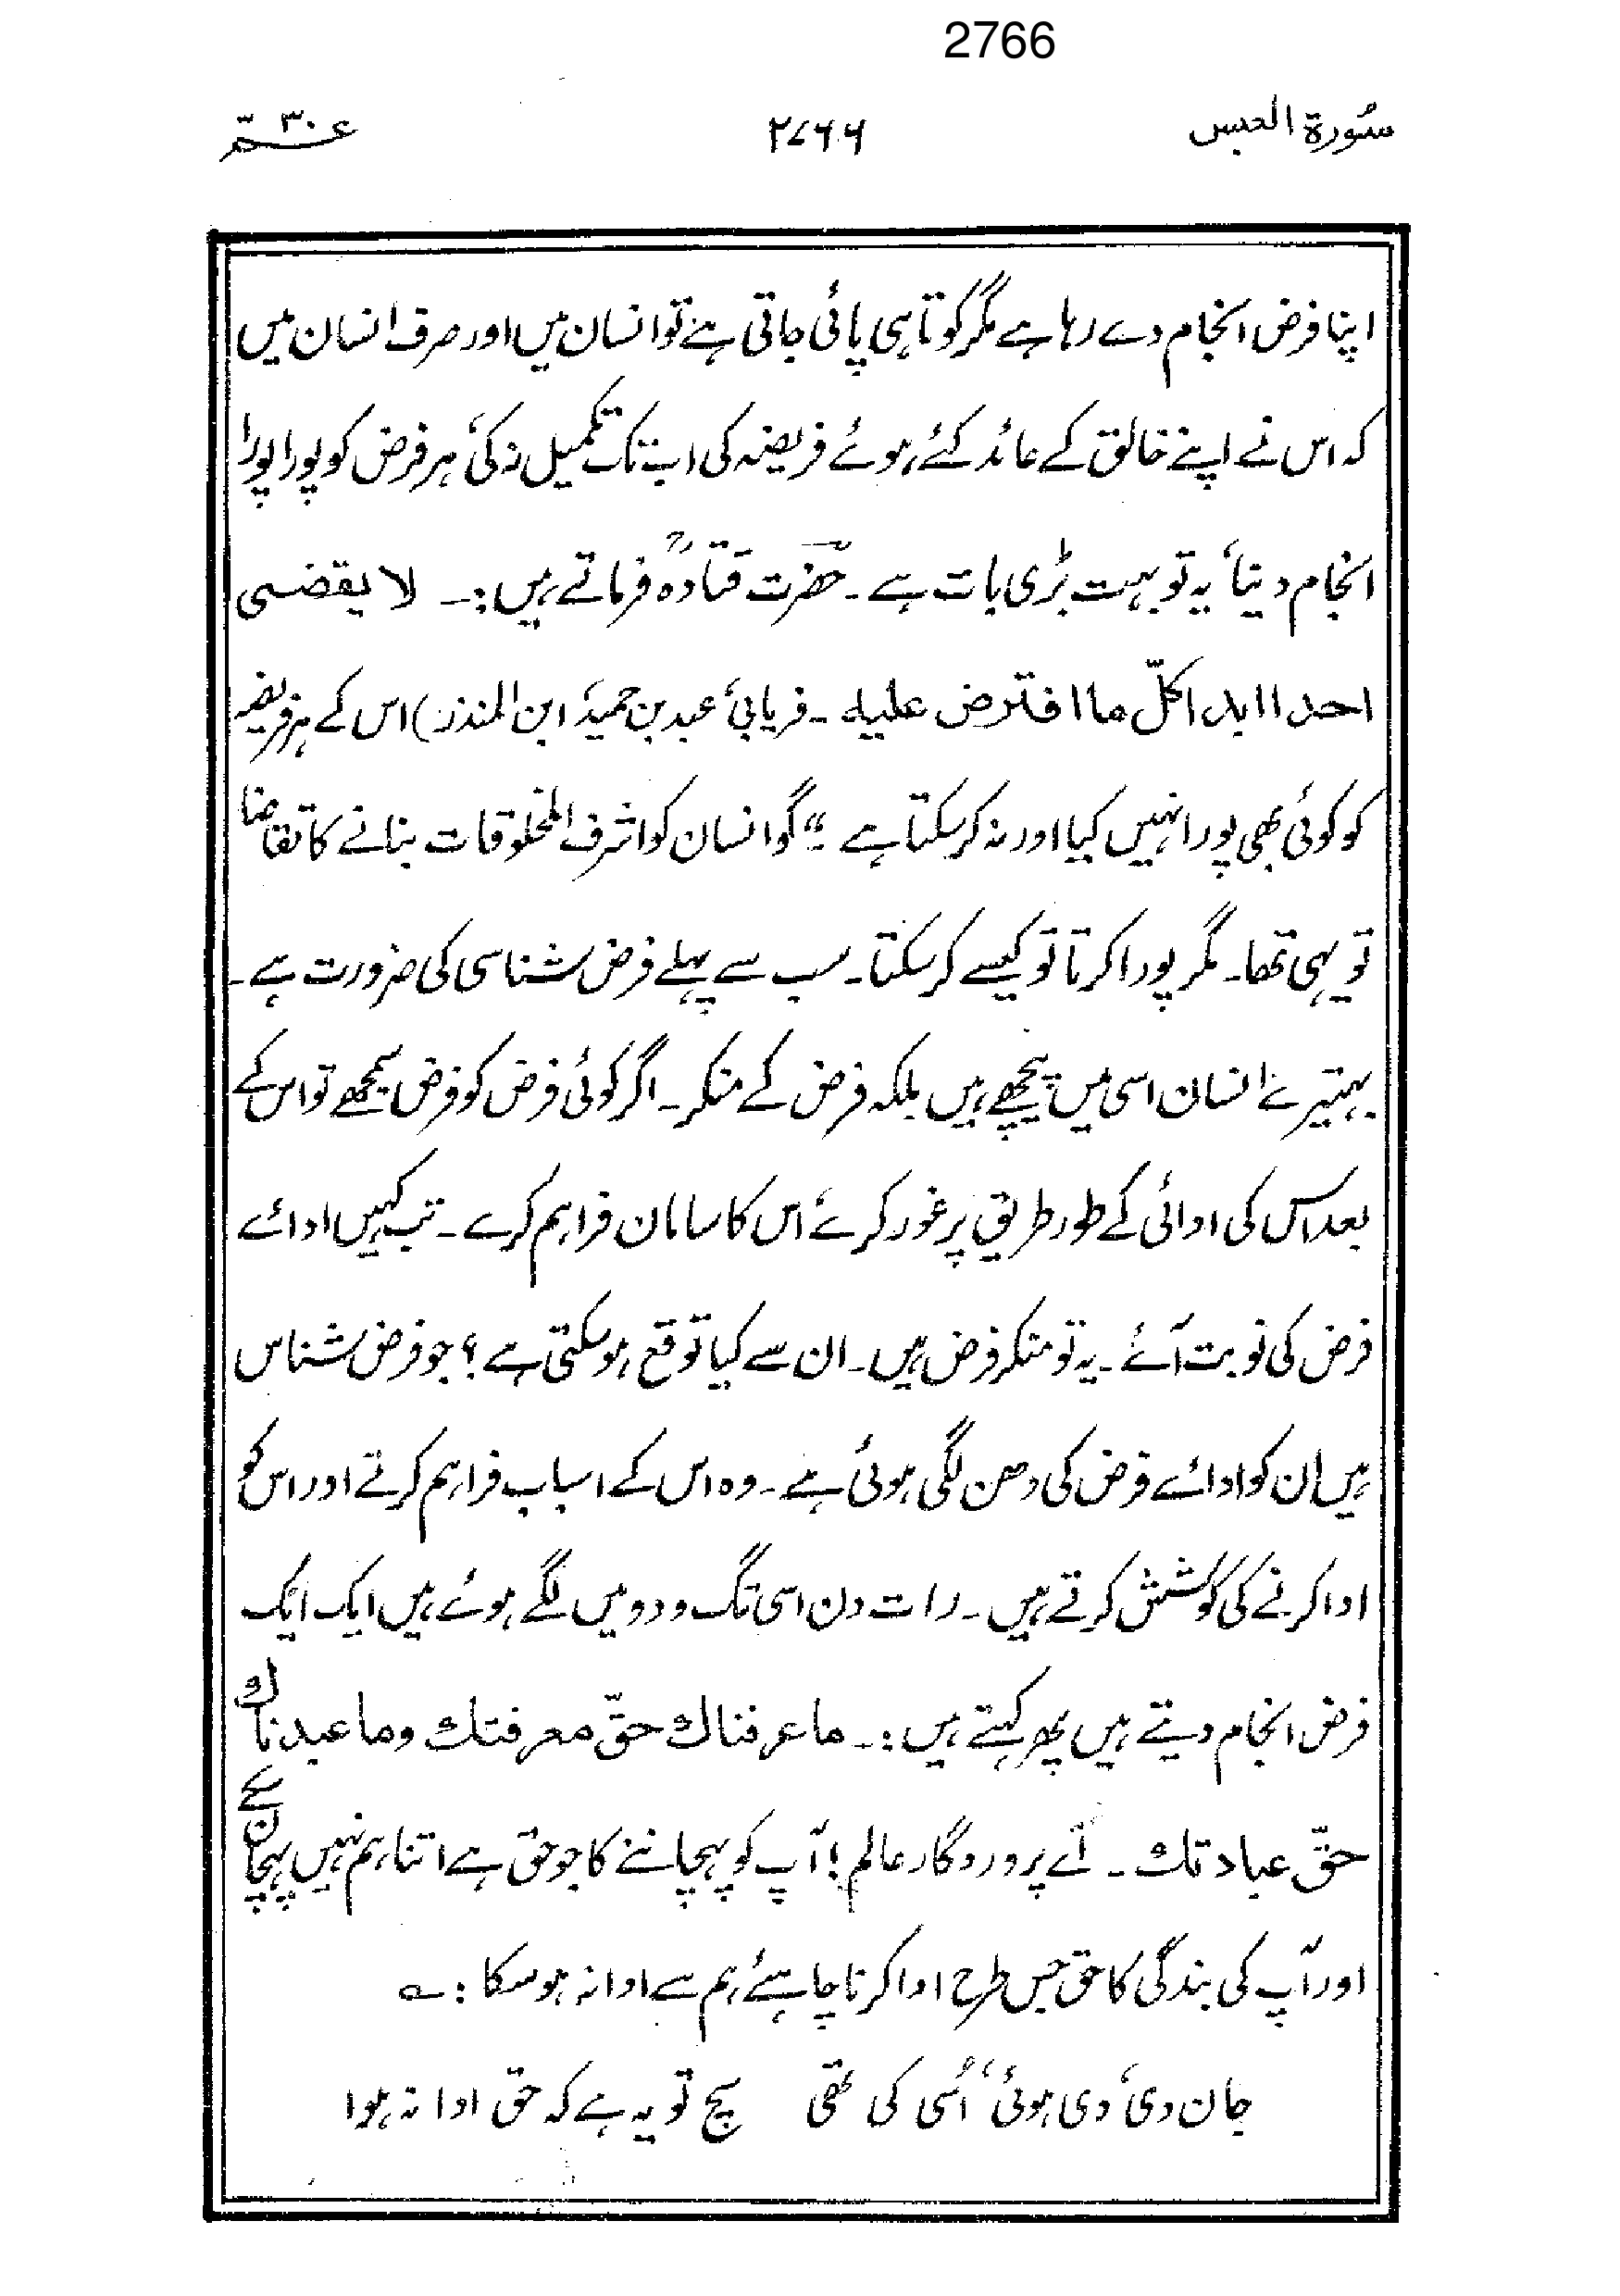 2766
سُورۃ العبس ۲۷۶۶ عـــمّ ۳۰
اپنا فرض انجام دے رہا ہے مگر کوتاہی پائی جاتی ہے تو انسان میں اور صرف انسان میں
کہ اس نے اپنے خالق کے عائد کئے ہوئے فریضہ کی اب تک تکمیل نہ کی، ہر فرض کو پورا پورا
انجام دینا، یہ تو بہت بڑی بات ہے۔ حضرت قتادہؒ فرماتے ہیں:۔ لا یقضی
احد ابدا کلّ ما افترض علیہ ۔ فریابی، عبد بن حمید، ابن المنذر) اس کے ہر فریضہ
کو کوئی بھی پورا نہیں کیا اور نہ کر سکتا ہے ۔" گو انسان کو اشرف المخلوقات بنانے کا تقاضا
تو یہی تھا۔ مگر پورا کرتا تو کیسے کر سکتا۔ سب سے پہلے فرض شناسی کی ضرورت ہے۔
بہتیرے انسان اسی میں پیچھے ہیں بلکہ فرض کے منکر۔ اگر کوئی فرض کو فرض سمجھے تو اس کے
بعد اس کی ادائی کے طور طریق پر غور کرے، اس کا سامان فراہم کرے۔ تب کہیں ادائے
فرض کی نوبت آئے۔ یہ تو منکر فرض ہیں۔ ان سے کیا توقع ہو سکتی ہے؟ جو فرض شناس
ہیں ان کو ادائے فرض کی دھن لگی ہوئی ہے۔ وہ اس کے اسباب فراہم کرتے اور اس کو
ادا کرنے کی کوشش کرتے ہیں۔ رات دن اسی تگ و دو میں لگے ہوئے ہیں ایک ایک
فرض انجام دیتے ہیں پھر کہتے ہیں:۔ ما عرفناك حقّ معرفتك وما عبدناك
حقّ عبادتك ۔ اے پروردگار عالم! آپ کو پہچاننے کا جو حق ہے اتنا ہم نہیں پہچان سکے
اور آپ کی بندگی کا حق جس طرح ادا کرنا چاہئے، ہم سے ادا نہ ہو سکا: ؎
جان دی، دی ہوئی، اُسی کی تھی سچ تو یہ ہے کہ حق ادا نہ ہوا